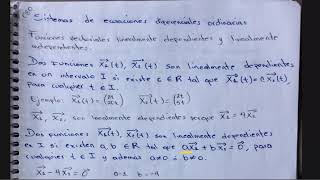 Sistemas de ecuaciones diferenciales ordinarias
Funciones vectoriales linealmente dependientes y linealmente
independientes.
Dos Funciones X₁(t), X₂(t) son linealmente dependientes en
un intervalo I si existe c ∈ R tal que X₁(t) = c X₂(t), para
cualquier t ∈ I.
Ejemplo: X₁(t) = X₂(t) =
X₁, X₂, son linealmente dependientes porque = 4X₂
Dos Funciones X₁(t), X₂(t) son linealmente dependientes
en I si existen a, b ∈ R tal que aX₁ + bX₂ = 0, para
cualquier t ∈ I y además a≠0 ó b≠0.
X₁ - 4X₂ = 0 a=1 b=-4